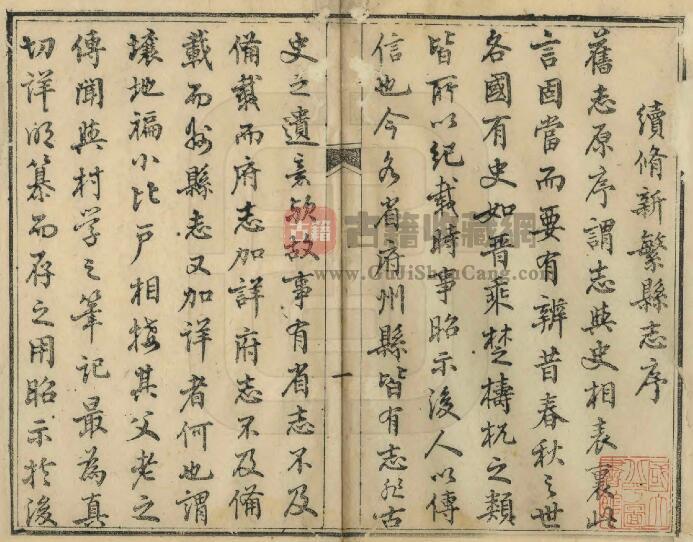 續脩新繁縣志序
舊志原序謂志與史相表裏此
言固當而要有辨昔春秋之世
各國有史如晋乘楚檮杌之類
皆所以紀載時事昭示後人以傳
信也今各省府州縣皆有志然古
史之遺意欤故事有省志不及
備載而府志加詳府志不及備
載而州縣志又加詳者何也謂
壤地褊小比户相接其父老之
傳聞與村学之筆记最為真
切詳明纂而存之用昭示於後
一
古籍 古籍收藏網
www.GuJiShouCang.com